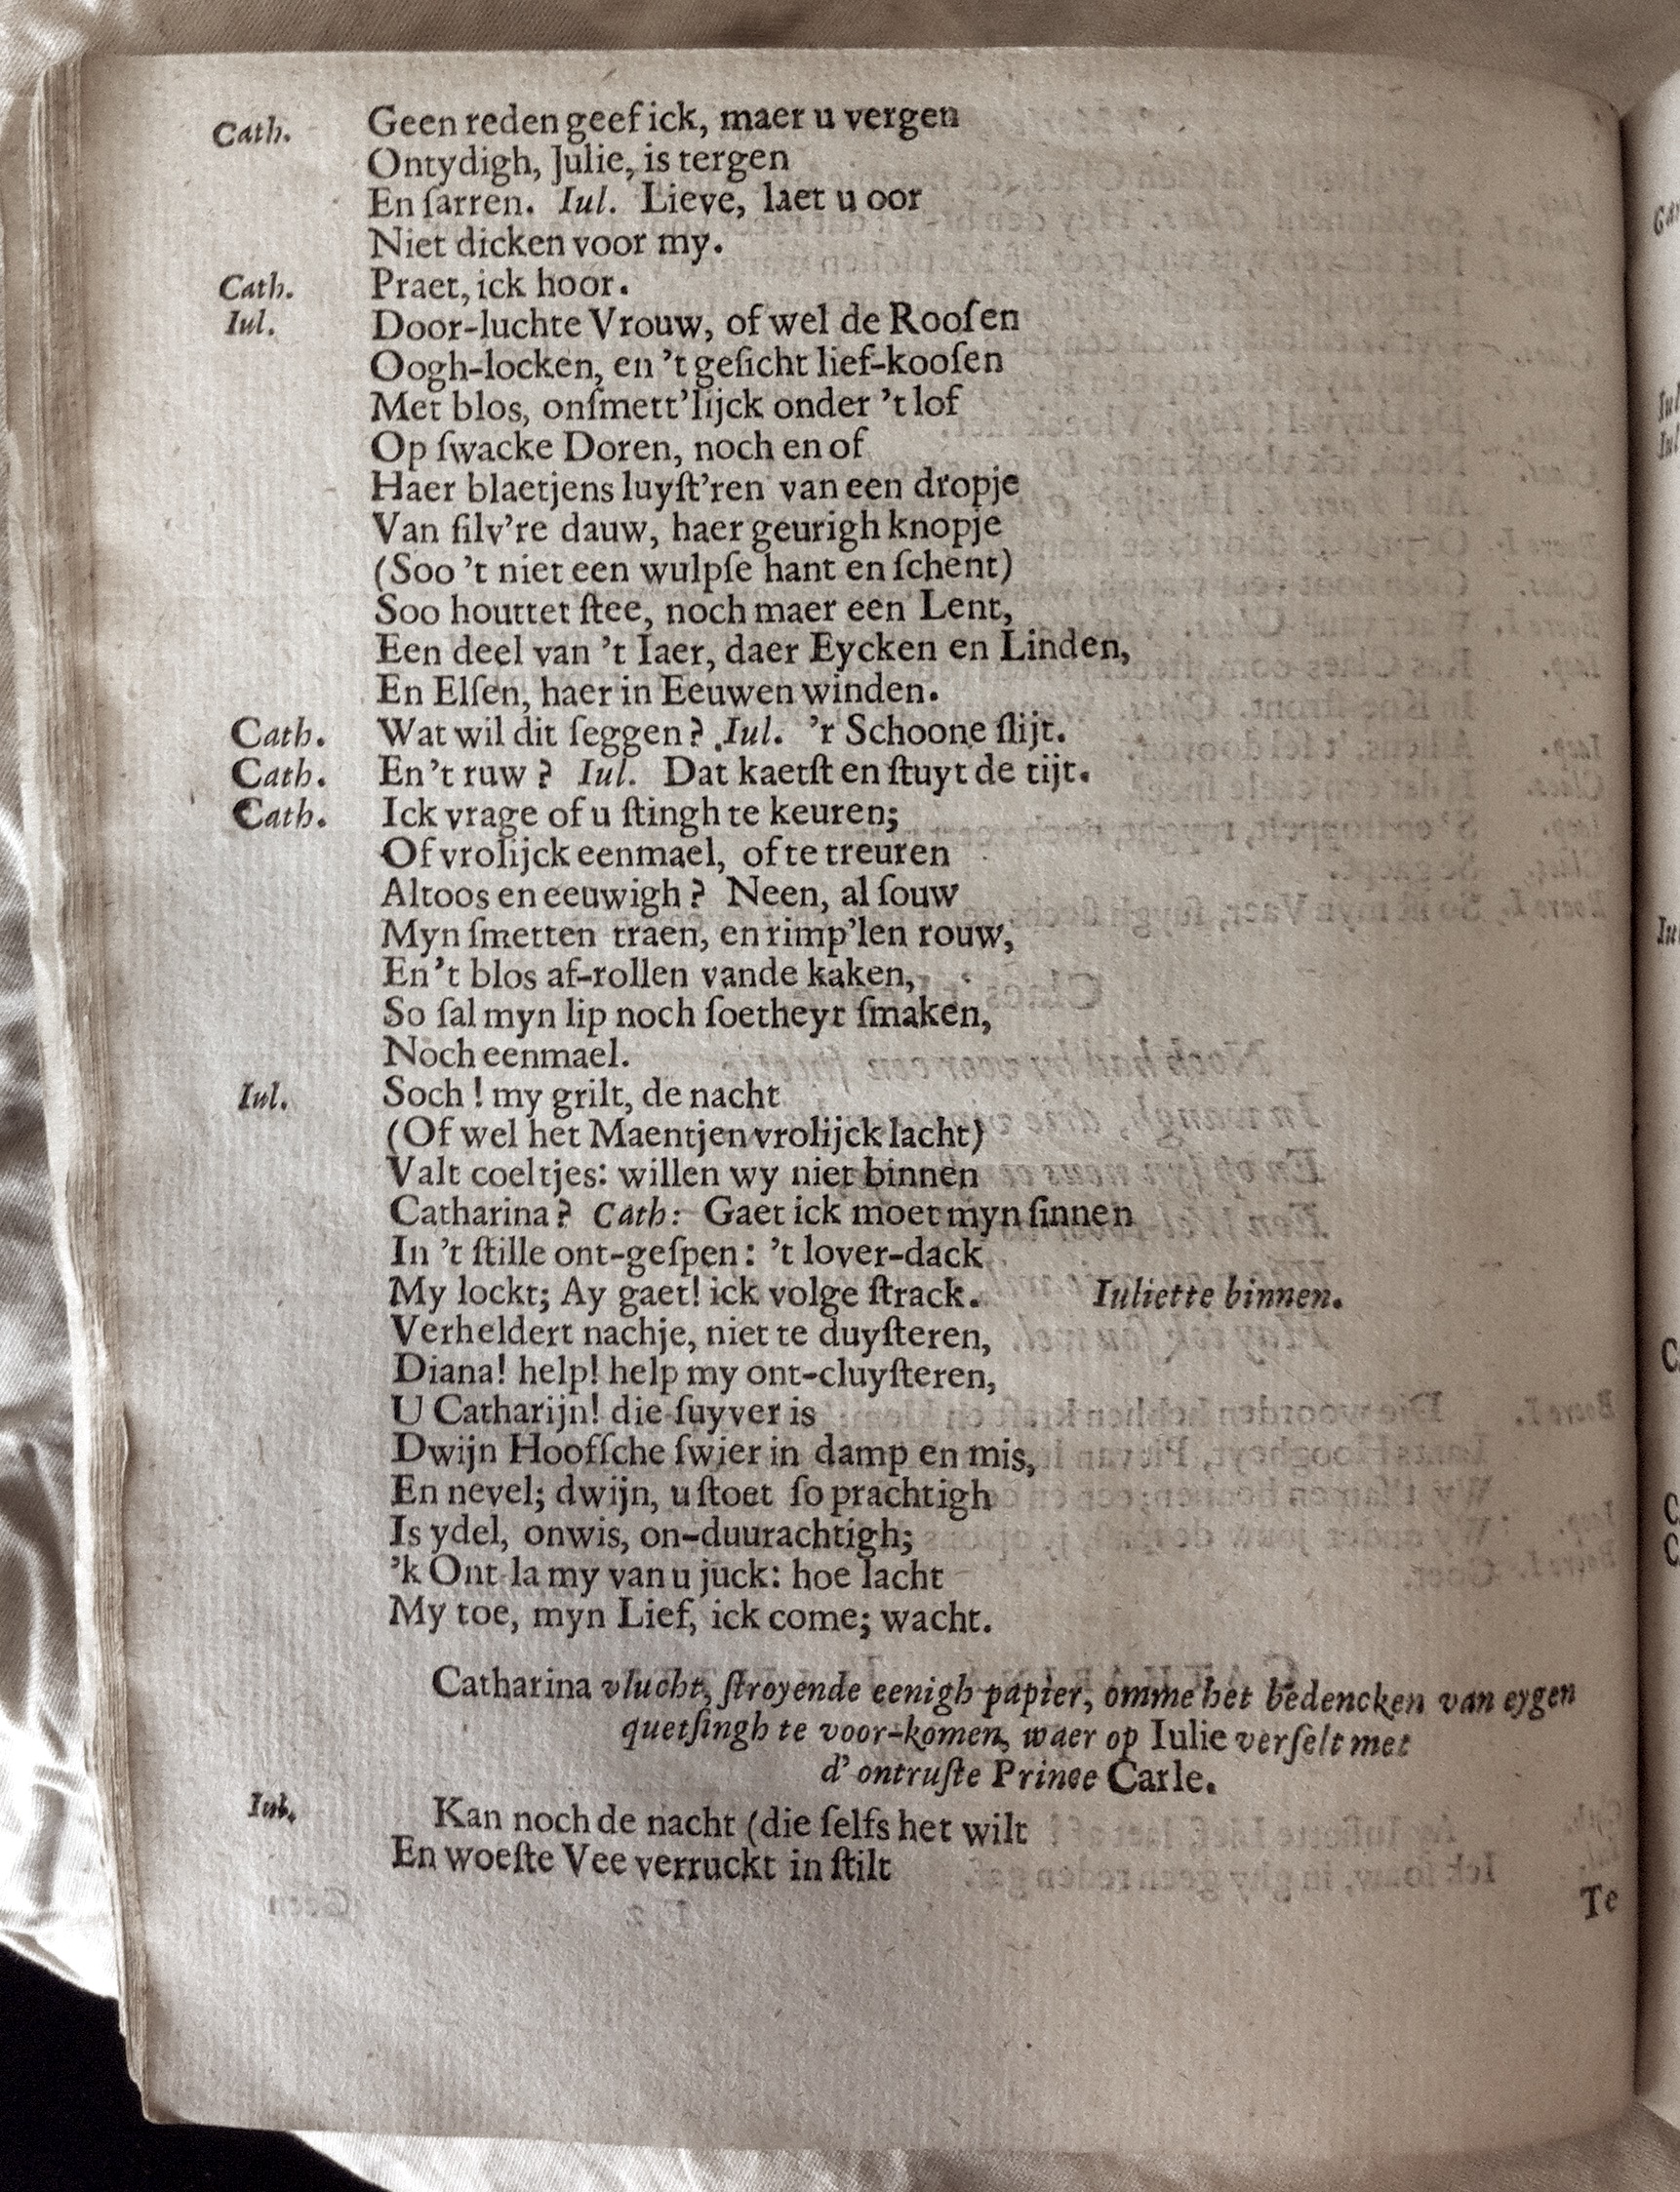 Cath. Geen reden geef ick, maer u vergen
Ontydigh, Julie, is tergen
En ſarren. Iul. Lieve, laet u oor
Niet dicken voor my.
Cath. Praet, ick hoor.
Iul. Door-luchte Vrouw, of wel de Rooſen
Oogh-locken, en 't geſicht lief-kooſen
Met blos, onſmett'lijck onder 't lof
Op ſwacke Doren, noch en of
Haer blaetjens luyſt'ren van een dropje
Van ſilv're dauw, haer geurigh knopje
(Soo 't niet een wulpſe hant en ſchent)
Soo houttet ſtee, noch maer een Lent,
Een deel van 't Iaer, daer Eycken en Linden,
En Elſen, haer in Eeuwen winden.
Cath. Wat wil dit ſeggen? Iul. 'r Schoone ſlijt.
Cath. En't ruw? Iul. Dat kaetſt en ſtuyt de tijt.
Cath. Ick vrage of u ſtingh te keuren;
Of vrolijck eenmael, of te treuren
Altoos en eeuwigh? Neen, al ſouw
Myn ſmetten traen, en rimp'len rouw,
En't blos af-rollen vande kaken,
So ſal myn lip noch ſoetheyt ſmaken,
Noch eenmael.
Iul. Soch! my grilt, de nacht
(Of wel het Maentjen vrolijck lacht)
Valt coeltjes: willen wy niet binnen
Catharina? Cath: Gaet ick moet myn ſinnen
In 't ſtille ont-geſpen: 't lover-dack
My lockt; Ay gaet! ick volge ſtrack. Iuliette binnen.
Verheldert nachje, niet te duyſteren,
Diana! help! help my ont-cluyſteren,
U Catharijn! die ſuyver is
Dwijn Hoofſche ſwier in damp en mis,
En nevel; dwijn, u ſtoet ſo prachtigh
Is ydel, onwis, on-duurachtigh;
'k Ont la my van u juck: hoe lacht
My toe, myn Lief, ick come; wacht.
Catharina vlucht, ſtroyende eenigh papier, omme het bedencken van eygen
quetſingh te voor-komen, waer op Iulie verſelt met
d' ontruſte Prince Carle.
Iul. Kan noch de nacht (die ſelfs het wilt
En woeſte Vee verruckt in ſtilt
Te